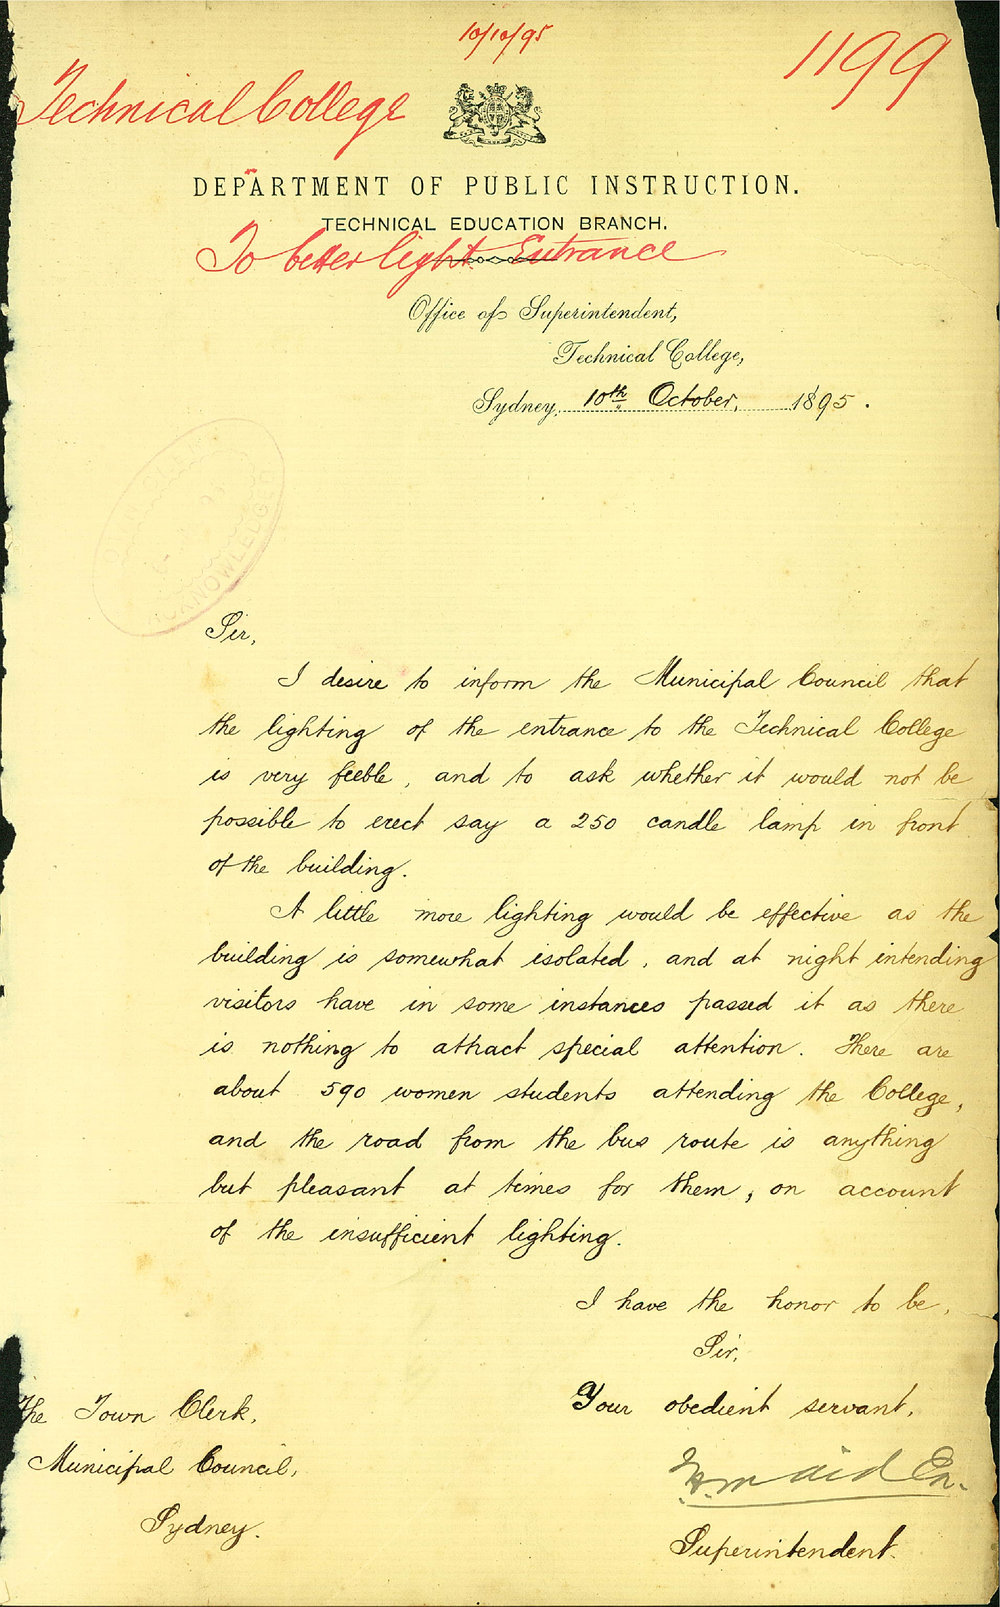 10/10/95
1199
Technical College
DEPARTMENT OF PUBLIC INSTRUCTION.
TECHNICAL EDUCATION BRANCH.
To better light Entrance
Office of Superintendent,
Technical College,
Sydney, 10th October, 1895.
ACKNOWLEDGED
Sir,
I desire to inform the Municipal Council that
the lighting of the entrance to the Technical College
is very feeble, and to ask whether it would not be
possible to erect say a 250 candle lamp in front
of the building.
A little more lighting would be effective as the
building is somewhat isolated, and at night intending
visitors have in some instances passed it as there
is nothing to attract special attention. There are
about 590 women students attending the College,
and the road from the bus route is anything
but pleasant at times for them, on account
of the insufficient lighting.
I have the honor to be,
Sir,
Your obedient servant,
Superintendent.
The Town Clerk,
Municipal Council,
Sydney.